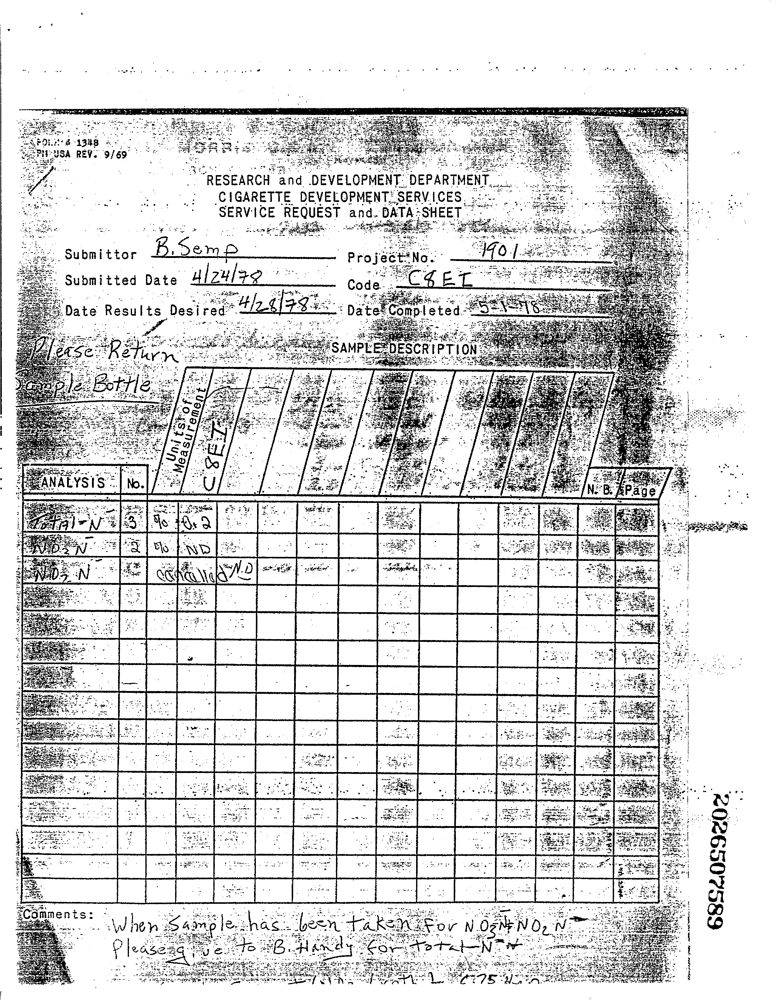 FORM 6 1348
PM USA REV. 9/69
RESEARCH and DEVELOPMENT DEPARTMENT
CIGARETTE DEVELOPMENT SERVICES
SERVICE REQUEST and DATA SHEET
Submittor B. Semp Project No. 1901
Submitted Date 4/24/78 Code C8EI
Date Results Desired 4/28/78 Date Completed 5-1-78
Please Return SAMPLE DESCRIPTION
Sample Bottle
Units of Measurement C8EI
ANALYSIS No. N. B. & Page
TOTAL-N 3 % 0.2
NO3 N 2 % ND
NO2 N cancelled N.D
Comments: When Sample has been taken for NO3N+NO2 N
Please give to B. Handy for total-N
2026507589